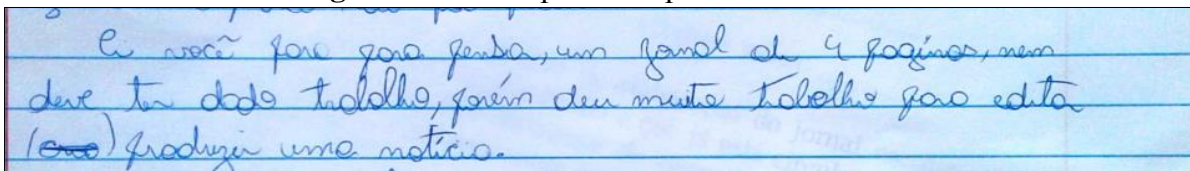 E você para para pensa, um jornal de 4 paginas, nem
deve ter dado trabalho, porém deu muito trabalho para edita
produzir uma notícia.